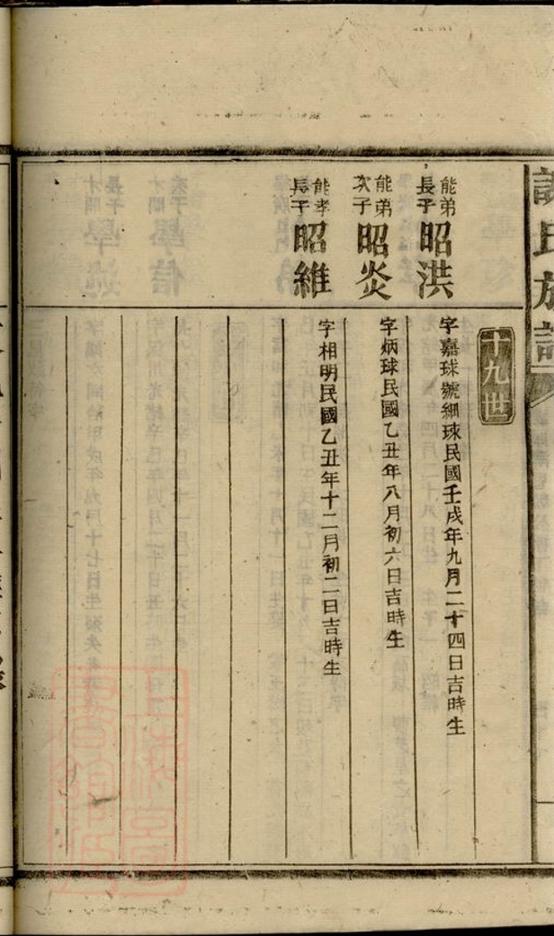 氏族譜
十九世
能弟長子昭洪
字嘉球號細球民國壬戌年九月二十四日吉時生
能弟次子昭炎
字炳球民國乙丑年八月初六日吉時生
能孝長子昭維
字相明民國乙丑年十二月初二日吉時生